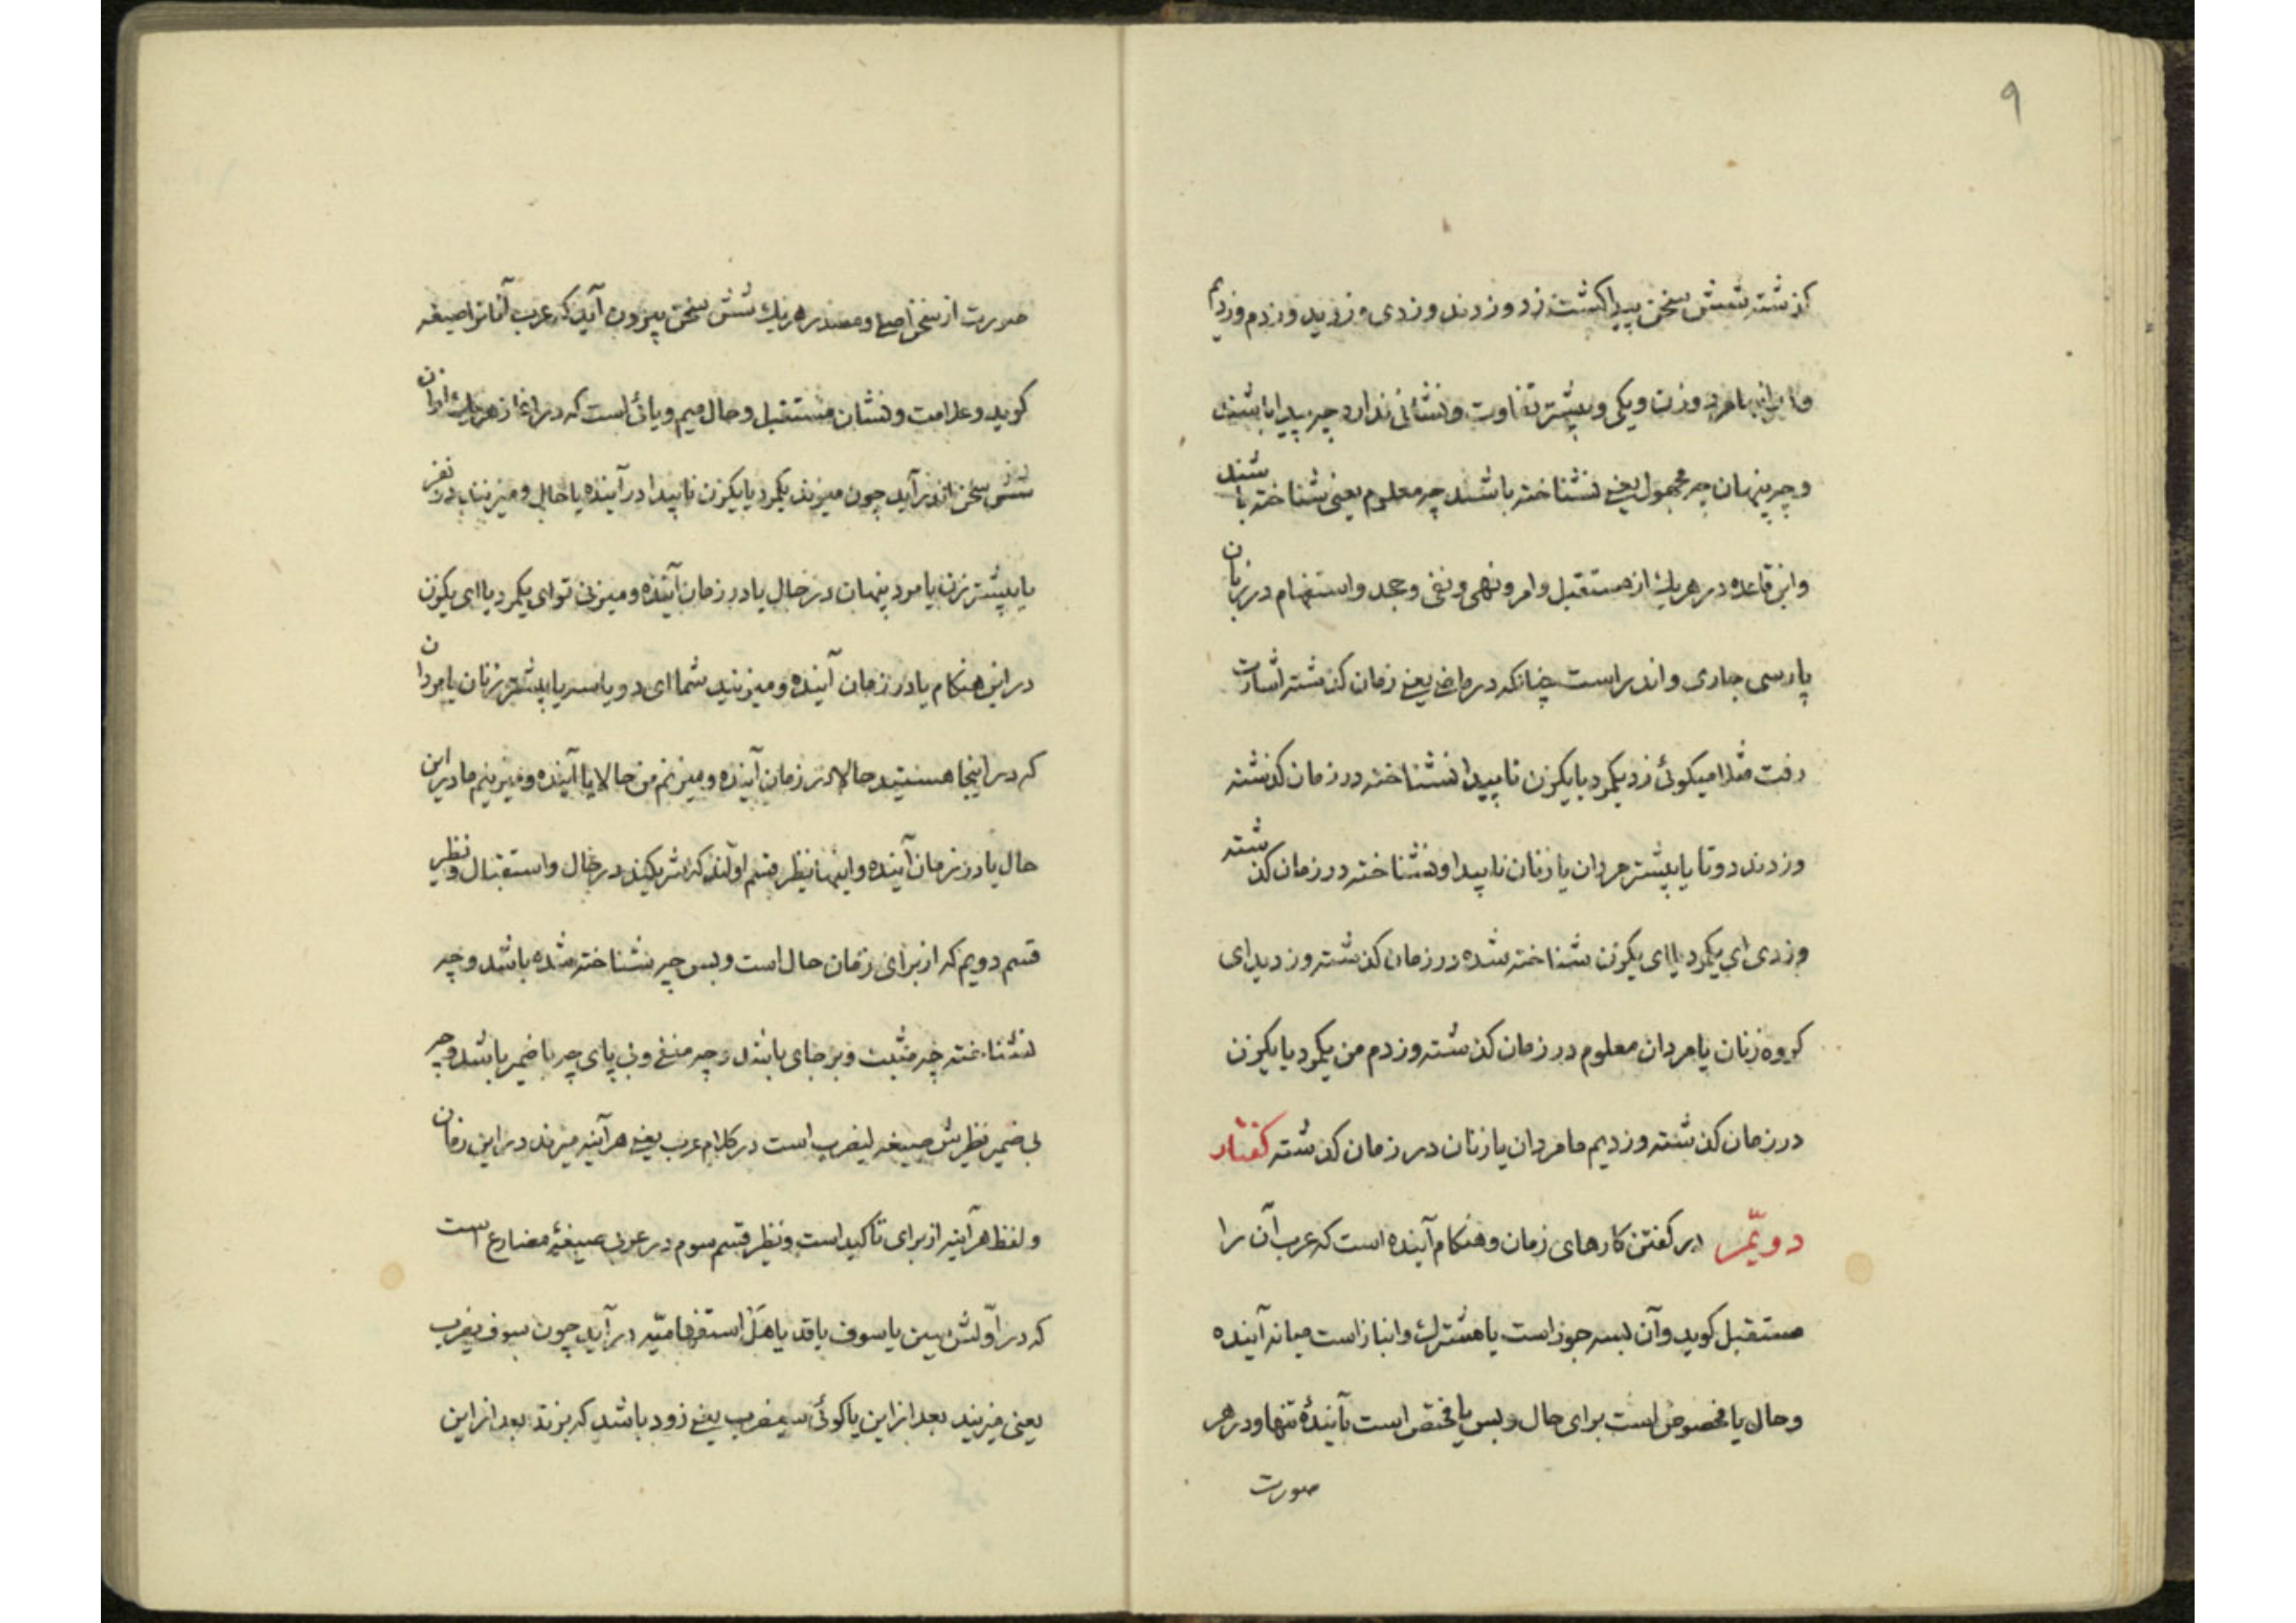 ۹
گذشته شش سخن پیدا گشت زد و زدند و زدی و زدید و زدم و زدیم
و با مرد و زن و یکی و بیشتر تفاوت و نشانی ندارد چه پیدا باشند
و چه پنهان چه مجهول یعنی نشناخته باشند چه معلوم یعنی شناخته باشند
و این قاعده در هر یک از مستقبل و امر و نهی و نفی و جحد و استفهام در زبان
پارسی جاری و اندر است چنانکه در ماضی یعنی زمان گذشته اشارت
رفت مثلا میگوئی زد یکمرد یا یکزن ناپیدا نشناخته در زمان گذشته
و زدند دوتا یا بیشتر مردان یا زنان ناپیدا و نشناخته در زمان گذشته
و زدی ای یکمرد یا ای یکزن شناخته شده در زمان گذشته و زدید ای
گروه زنان یا مردان معلوم در زمان گذشته و زدم من یکمرد یا یکزن
در زمان گذشته و زدیم ما مردان یا زنان در زمان گذشته گفتار
دویّم در گفتن کارهای زمان و هنگام آینده است که عرب آن را
مستقبل گوید و آن بسه جوز است یا مشترک و انباز است میانه آینده
و حال یا مخصوص است برای حال و بس یا مختص است بآیندهٔ تنها و در هر
صورت
صورت از سخن اصلی و مصدر هر یک شش سخن بیرون آید که عرب آنانرا صیغه
گوید و علامت و نشان مستقبل و حال میم و یائی است که در آغاز هر یک از آن
شش سخن اندر آید چون میزند یکمرد یا یکزن ناپیدا در آینده یا حال و میزنند دو نفر
یا بیشتر زن یا مرد پنهان در حال یا در زمان آینده و میزنی تو ای یکمرد یا ای یکزن
در این هنگام یا در زمان آینده و میزنید شما ای دو یا سه یا بیشتر زنان یا مردان
که در اینجا هستید حالا در زمان آینده و میزنم من حالا یا آینده و میزنیم ما در این
حال یا در زمان آینده و اینها نظیر قسم اولند که شریکند در حال و استقبال و نظیر
قسم دویم که از برای زمان حال است و بس چه شناخته شده باشد و چه
نشناخته چه مثبت و برجای باشد و چه منفی و بی پای چه با ضمیر باشد و چه
بی ضمیر نظیرش صیغه لیضرب است در کلام عرب یعنی هر آینه میزند در این زمان
و لفظ هر آینه از برای تاکید است و نظیر قسم سوم در عربی صیغهٔ مضارع است
که در اوّلش سین یا سوف یا قد یا هَل استفهامیّه در آید چون سوف یضرب
یعنی میزند بعد از این یا گوئی سیضرب یعنی زود باشد که بزند بعد از این